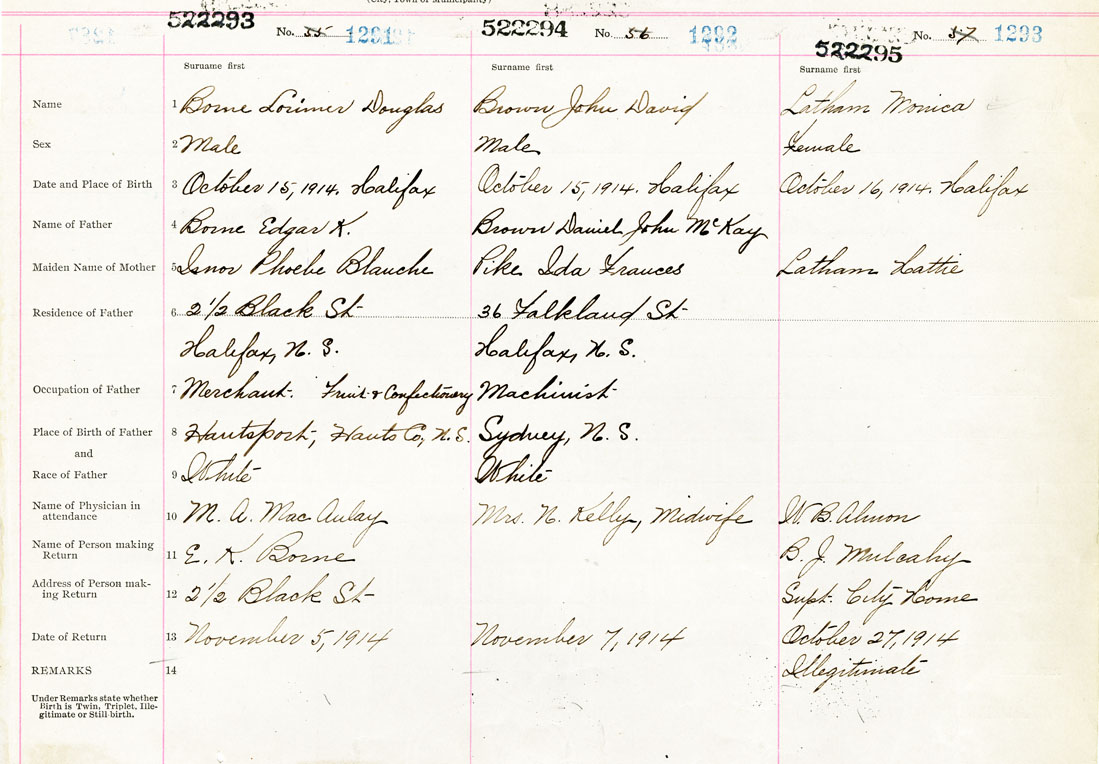 (City, Town or Municipality)
522293 No. 55 1291
522294 No. 56 1292
522295 No. 57 1293
Surname first Surname first Surname first
Name 1 Borne Lorimer Douglas Brown John David Latham Monica
Sex 2 Male Male Female
Date and Place of Birth 3 October 15, 1914. Halifax October 15, 1914. Halifax October 16, 1914. Halifax
Name of Father 4 Borne Edgar K. Brown Daniel John McKay
Maiden Name of Mother 5 Isnor Phoebe Blanche Pike Ida Frances Latham Hattie
Residence of Father 6 2 1/2 Black St 36 Falkland St
Halifax, N. S. Halifax, N. S.
Occupation of Father 7 Merchant. Fruit & Confectionery Machinist
Place of Birth of Father 8 Hantsport, Hants Co, N. S. Sydney, N. S.
and
Race of Father 9 White White
Name of Physician in
attendance 10 M. A. MacAulay Mrs. N. Kelly, Midwife W. B. Almon
Name of Person making
Return 11 E. K. Borne B. J. Mulcahy
Address of Person mak-
ing Return 12 2 1/2 Black St Supt. City Home
Date of Return 13 November 5, 1914 November 7, 1914 October 27, 1914
REMARKS 14 Illegitimate
Under Remarks state whether
Birth is Twin, Triplet, Ille-
gitimate or Still-birth.